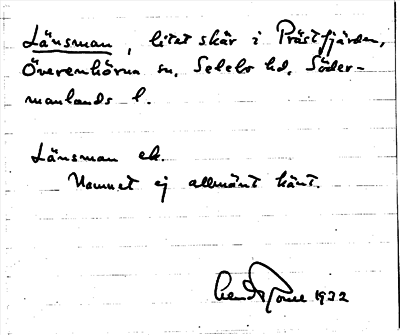 Länsman, litet skär i Prästfjärden,
Överenhörna sn, Selebo hd, Söder-
manlands l.
Länsman ek.
Namnet ej allmänt känt.
1932